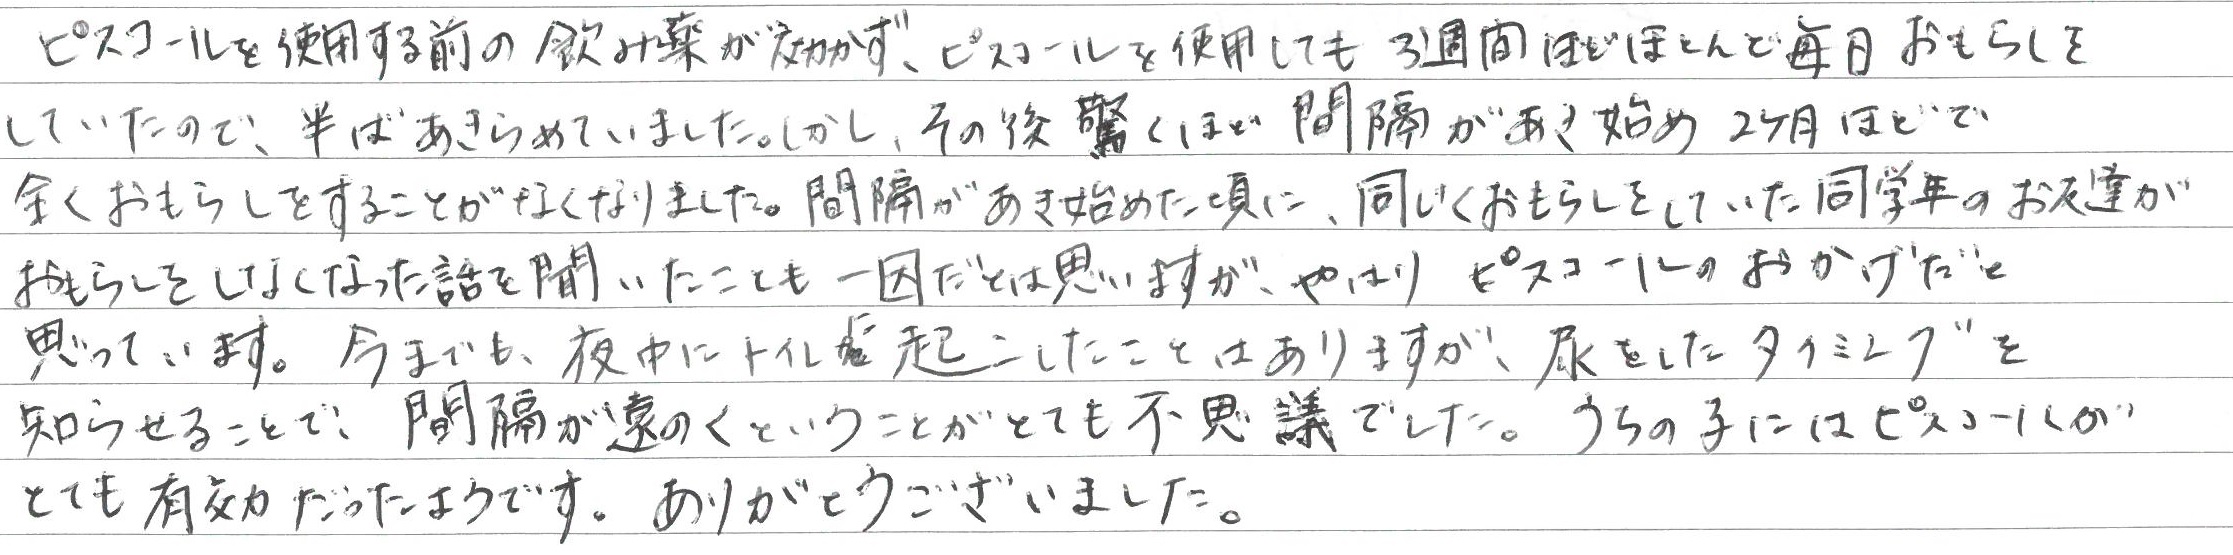 ピスコールを使用する前の飲み薬が効かず、ピスコールを使用しても3週間ほどほとんど毎日おもらしを
していたので、半ばあきらめていました。しかし、その後驚くほど間隔があき始め2ケ月ほどで
全くおもらしをすることがなくなりました。間隔があき始めた頃に、同じくおもらしをしていた同学年のお友達が
おもらしをしなくなった話を聞いたことも一因だとは思いますが、やはりピスコールのおかげだと
思っています。今までも、夜中にトイレに起こしたことはありますが、尿をしたタイミングを
知らせることで、間隔が遠のくということがとても不思議でした。うちの子にはピスコールが
とても有効だったようです。ありがとうございました。